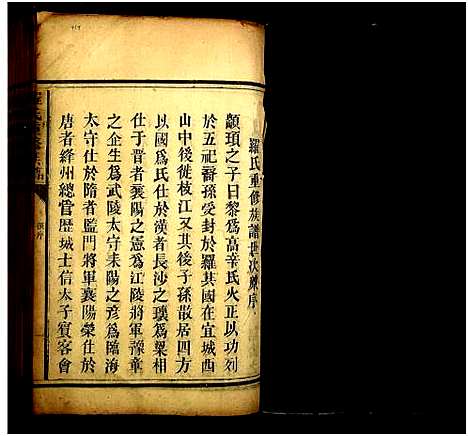 羅氏重修族譜世次原序
顓頊之子曰黎為高辛氏火正以功列
於五祀裔孫受封於羅其國在宜城西
山中後徙枝江又其後子孫散居四方
以國爲氏仕於漢者長沙之瓌爲梁相
仕于晋者襄陽之憲爲江陵將軍豫章
之企生爲武陵太守耒陽之彥爲臨海
太守仕於隋者監門將軍襄陽榮仕於
唐者絳州總管歷城士信太子賓客會